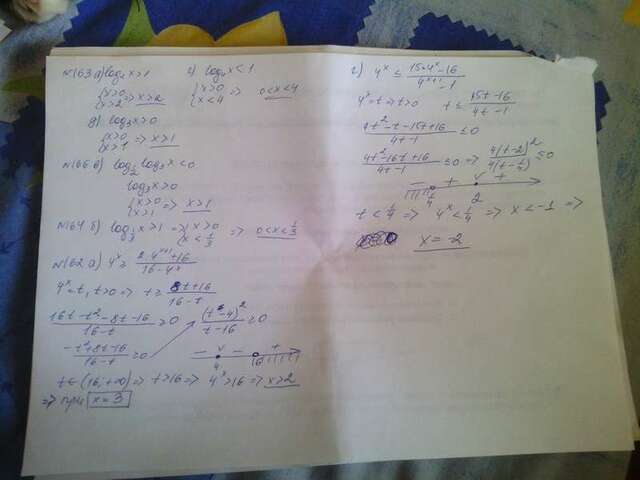 N163 а) log₂x>1
{x>0
{x>2 ⇒ x>2
log₄x<1
{x>0
{x<4 ⇒ 0<x<4
log₃x>0
{x>0
{x>1 ⇒ x>1
log₃x<0
log₃x>0
{x>0
{x>1 ⇒ x>1
N164 б) log 1/3 x>1 ⇒ {x>0
{x<1/3 ⇒ 0<x<1/3
N162 а) 4ˣ ≥ (2·4ˣ⁺¹+16)/(16-4ˣ)
4ˣ=t, t>0 ⇒ t ≥ (8t+16)/(16-t)
(16t-t²-8t-16)/(16-t) ≥0 (t-4)²/(t-16) ≥0
(-t²+8t-16)/(16-t) ≥0
- - +
4 16
t∈(16,+∞) ⇒ t>16 ⇒ 4ˣ>16 ⇒ x>2
⇒ при x=3
г) 4ˣ ≤ (15·4ˣ-16)/(4ˣ⁺¹-1)
4ˣ=t ⇒ t>0 t ≤ (15t-16)/(4t-1)
(4t²-t-15t+16)/(4t-1) ≤0
(4t²-16t+16)/(4t-1) ≤0 ⇒ 4(t-2)²/4(t-1/4) ≤0
- + +
1/4 2
t<1/4 ⇒ 4ˣ<1/4 ⇒ x<-1 ⇒
x=-2